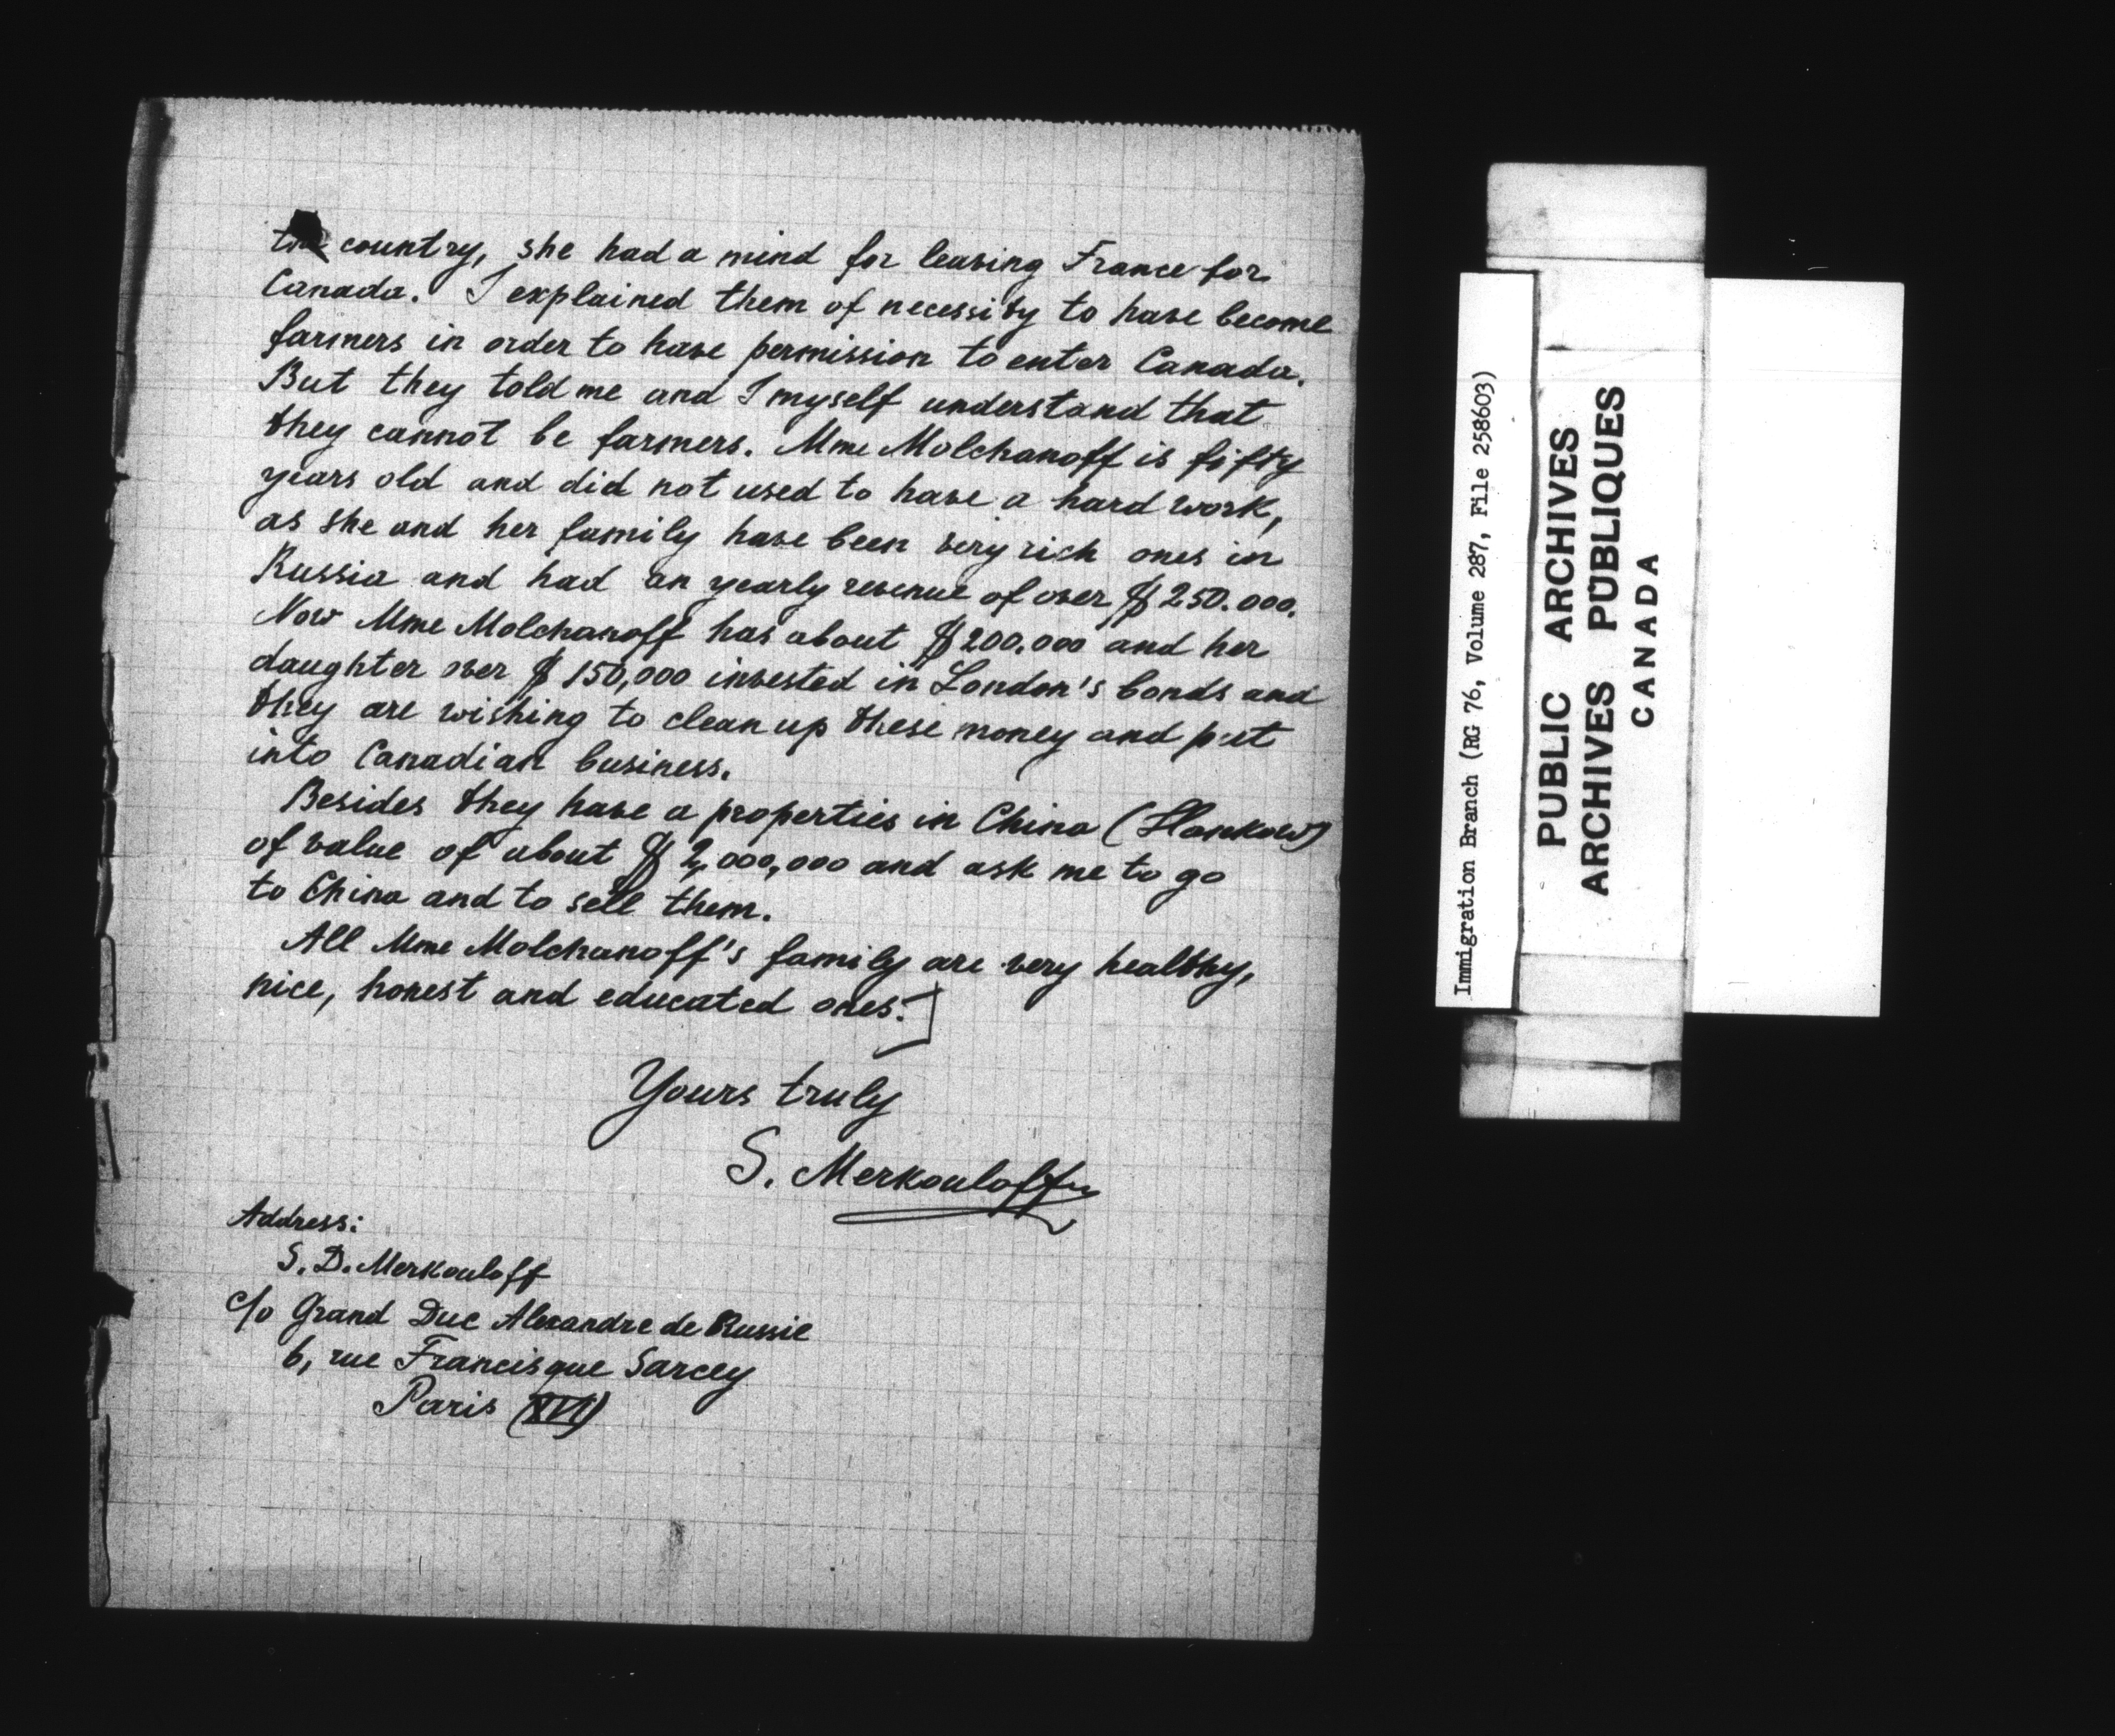 the country, she had a mind for leaving France for
Canada. I explained them of necessity to have become
farmers in order to have permission to enter Canada.
But they told me and I myself understand that
they cannot be farmers. Mme Molchanoff is fifty
years old and did not used to have a hard work,
as she and her family have been very rich ones in
Russia and had an yearly revenue of over $ 250.000.
Now Mme Molchanoff has about $ 200.000 and her
daughter over $ 150,000 invested in London's bonds and
they are wishing to clean up these money and put
into Canadian business.
Besides they have a properties in China (Hankow)
of value of about $ 2,000,000 and ask me to go
to China and to sell them.
All Mme Molchanoff's family are very healthy,
nice, honest and educated ones.]
Yours truly
S. Merkouloff
Address:
S. D. Merkouloff
c/o Grand Duc Alexandre de Russie
6, rue Francisque Sarcey
Paris (XVI)
Immigration Branch (RG 76, Volume 287, File 258603)
PUBLIC ARCHIVES
ARCHIVES PUBLIQUES
CANADA